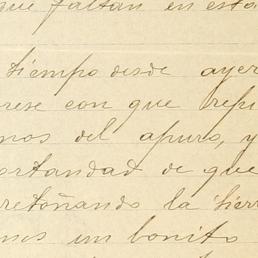 que faltan en esta
tiempo desde ayer
rese con que repi
nos del apuro, y
ortandad de que
retoñando la tierr
mos un bonito